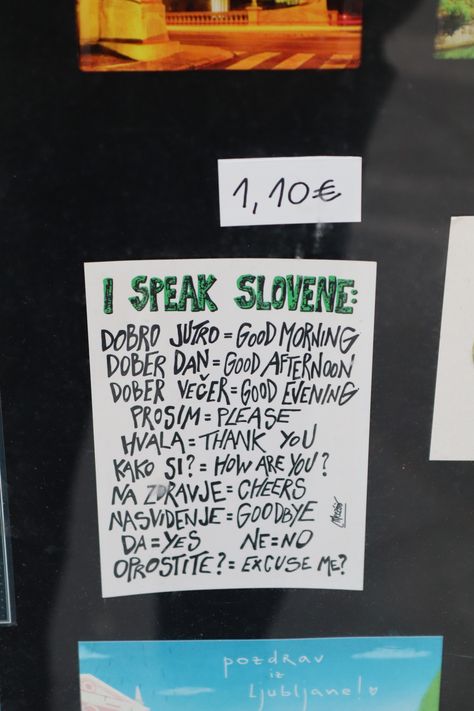 1,10€
I SPEAK SLOVENE:
DOBRO JUTRO = GOOD MORNING
DOBER DAN = GOOD AFTERNOON
DOBER VEČER = GOOD EVENING
PROSIM = PLEASE
HVALA = THANK YOU
KAKO SI? = HOW ARE YOU?
NA ZDRAVJE = CHEERS
NASVIDENJE = GOODBYE
DA = YES NE = NO
OPROSTITE? = EXCUSE ME?
pozdrav
iz
ljubljane!